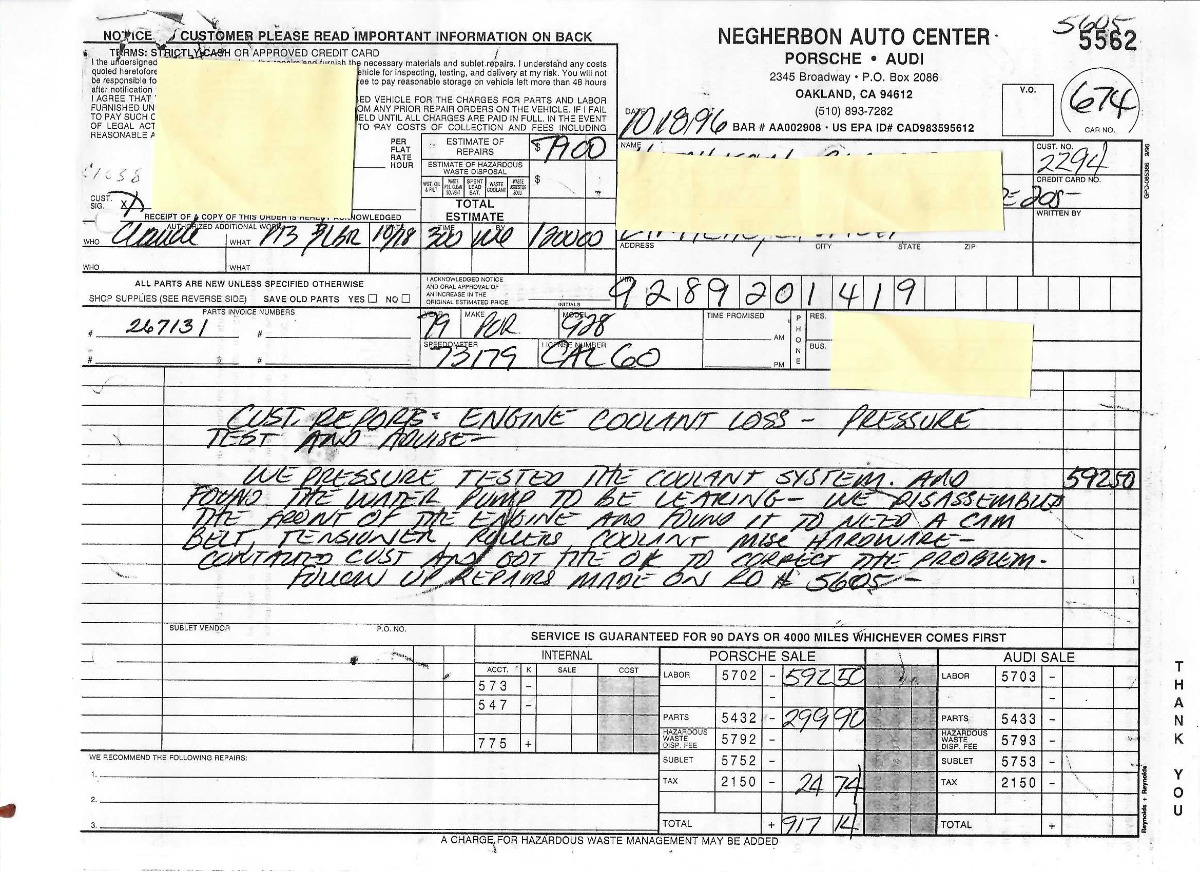 NOTICE CUSTOMER PLEASE READ IMPORTANT INFORMATION ON BACK
TERMS: STRICTLY CASH OR APPROVED CREDIT CARD
I the undersigned furnish the necessary materials and sublet repairs. I understand any costs
quoted heretofore vehicle for inspecting, testing, and delivery at my risk. You will not
be responsible fo ee to pay reasonable storage on vehicle left more than 48 hours
after notification
I AGREE THAT SED VEHICLE FOR THE CHARGES FOR PARTS AND LABOR
FURNISHED UN OM ANY PRIOR REPAIR ORDERS ON THE VEHICLE. IF I FAIL
TO PAY SUCH C HELD UNTIL ALL CHARGES ARE PAID IN FULL. IN THE EVENT
OF LEGAL ACT TO PAY COSTS OF COLLECTION AND FEES INCLUDING
REASONABLE A
NEGHERBON AUTO CENTER
PORSCHE • AUDI
2345 Broadway • P.O. Box 2086
OAKLAND, CA 94612
(510) 893-7282
BAR # AA002908 • US EPA ID# CAD983595612
5605
5562
V.O.
674
CAR NO.
DATE 10/18/96
PER FLAT RATE HOUR
ESTIMATE OF REPAIRS $ 7900
ESTIMATE OF HAZARDOUS WASTE DISPOSAL $
TOTAL ESTIMATE
NAME
CUST. NO.
2294
CREDIT CARD NO.
WRITTEN BY
CUST. SIG. X
RECEIPT OF A COPY OF THIS ORDER IS HEREBY ACKNOWLEDGED
AUTHORIZED ADDITIONAL WORK
WHO Claude WHAT 10/18 300 120000
WHO WHAT
ADDRESS CITY STATE ZIP
ALL PARTS ARE NEW UNLESS SPECIFIED OTHERWISE
SHOP SUPPLIES (SEE REVERSE SIDE) SAVE OLD PARTS YES ☐ NO ☐
I ACKNOWLEDGED NOTICE AND ORAL APPROVAL OF AN INCREASE IN THE ORIGINAL ESTIMATED PRICE
INITIALS
VIN 9289201419
PARTS INVOICE NUMBERS
# 267131 #
# #
79 MAKE POR MODEL 928
SPEEDOMETER 73179 LICENSE NUMBER CAL 60
TIME PROMISED AM PM
PHONE RES. BUS.
CUST. REPORTS: ENGINE COOLANT LOSS - PRESSURE
TEST AND ADVISE-
WE PRESSURE TESTED THE COOLANT SYSTEM. AND 59250
FOUND THE WATER PUMP TO BE LEAKING - WE DISASSEMBLED
THE FRONT OF THE ENGINE AND FOUND IT TO NEED A CAM
BELT, TENSIONER, ROLLERS COOLANT MISC HARDWARE -
CONTACTED CUST AND GOT THE OK TO CORRECT THE PROBLEM.
FOLLOW UP REPAIRS MADE ON RO # 5605 -
SUBLET VENDOR P.O. NO.
SERVICE IS GUARANTEED FOR 90 DAYS OR 4000 MILES WHICHEVER COMES FIRST
INTERNAL PORSCHE SALE AUDI SALE
ACCT. K SALE COST
573 -
547 -
775 +
LABOR 5702 - 592 50
PARTS 5432 - 299 90
HAZARDOUS WASTE DISP. FEE 5792 -
SUBLET 5752 -
TAX 2150 - 24 74
TOTAL + 917 14
LABOR 5703 -
PARTS 5433 -
HAZARDOUS WASTE DISP. FEE 5793 -
SUBLET 5753 -
TAX 2150 -
TOTAL +
WE RECOMMEND THE FOLLOWING REPAIRS:
1.
2.
3.
A CHARGE FOR HAZARDOUS WASTE MANAGEMENT MAY BE ADDED
THANK YOU
Reynolds + Reynolds